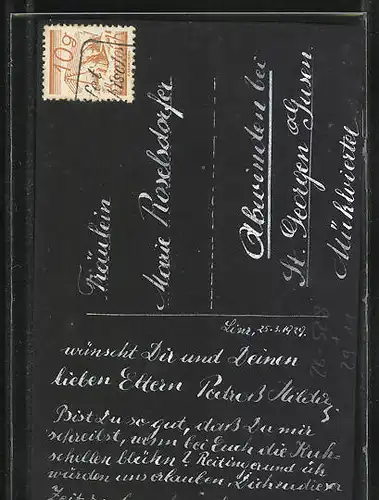 10 g
Fräulein
Marie Roselsdorfer
Abwinden bei
St. Georgen a/G Gusen
Mühlviertel
Linz, 25.3.1929.
wünscht Dir und Deinen
lieben Eltern
Bist Du so gut, daß Du mir
schreibst, wenn bei Euch die Kuh-
schellen blühn? Reitinger und ich
würden uns erlauben, Dich zu dieser